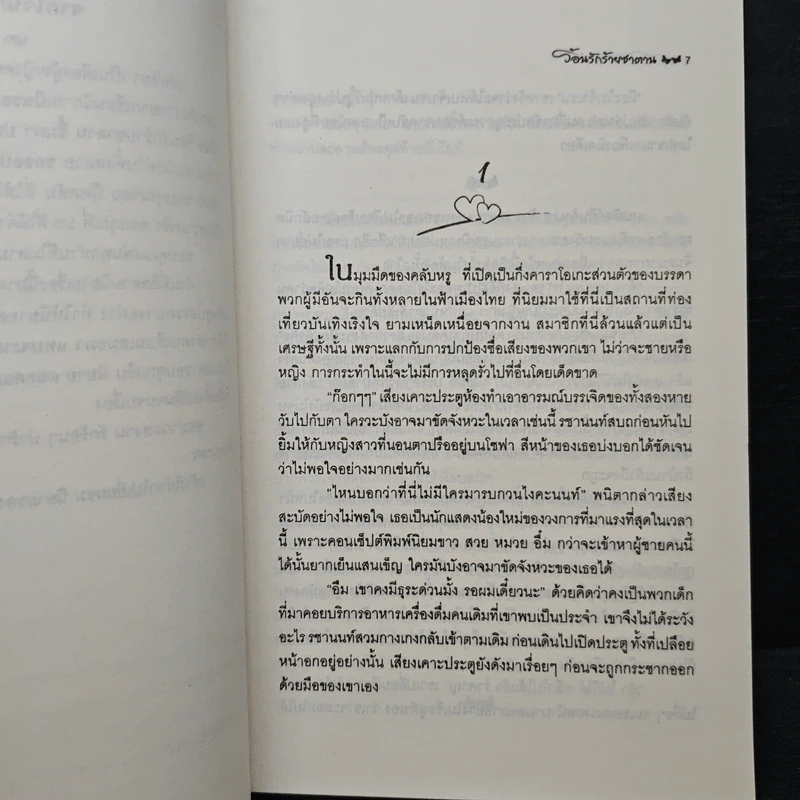 ว้อนรักร้ายซาตาน 7
1
ในมุมมืดของคลับหรู ที่เปิดเป็นกึ่งคาราโอเกะส่วนตัวของบรรดา
พวกผู้มีอันจะกินทั้งหลายในฟ้าเมืองไทย ที่นิยมมาใช้ที่นี่เป็นสถานที่ท่อง
เที่ยวบันเทิงเริงใจ ยามเหน็ดเหนื่อยจากงาน สมาชิกที่นี่ล้วนแล้วแต่เป็น
เศรษฐีทั้งนั้น เพราะแลกกับการปกป้องชื่อเสียงของพวกเขา ไม่ว่าจะชายหรือ
หญิง การกระทำในนี้จะไม่มีการหลุดรั่วไปที่อื่นโดยเด็ดขาด
“ก๊อกๆๆ” เสียงเคาะประตูห้องทำเอาอารมณ์บรรเจิดของทั้งสองหาย
วับไปกับตา ใครวะบังอาจมาขัดจังหวะในเวลาเช่นนี้ รชานนท์สบถก่อนหันไป
ยิ้มให้กับหญิงสาวที่นอนตาปรืออยู่บนโซฟา สีหน้าของเธอบ่งบอกได้ชัดเจน
ว่าไม่พอใจอย่างมากเช่นกัน
“ไหนบอกว่าที่นี่ไม่มีใครมารบกวนไงคะนนท์” พนิตากล่าวเสียง
สะบัดอย่างไม่พอใจ เธอเป็นนักแสดงน้องใหม่ของวงการที่มาแรงที่สุดในเวลา
นี้ เพราะคอนเซ็ปต์พิมพ์นิยมขาว สวย หมวย อึ๋ม กว่าจะเข้าหาผู้ชายคนนี้
ได้นั้นยากเย็นแสนเข็ญ ใครมันบังอาจมาขัดจังหวะของเธอได้
“อืม เขาคงมีธุระด่วนมั้ง รอผมเดี๋ยวนะ” ด้วยคิดว่าคงเป็นพวกเด็ก
ที่มาคอยบริการอาหารเครื่องดื่มคนเดิมที่เขาพบเป็นประจำ เขาจึงไม่ได้ระวัง
อะไร รชานนท์สวมกางเกงกลับเข้าตามเดิม ก่อนเดินไปเปิดประตู ทั้งที่เปลือย
หน้าอกอยู่อย่างนั้น เสียงเคาะประตูยังดังมาเรื่อยๆ ก่อนจะถูกกระชากออก
ด้วยมือของเขาเอง